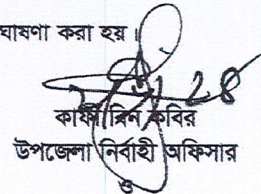 ঘোষণা করা হয়।
কাফী বিন কবির
উপজেলা নির্বাহী অফিসার
ও